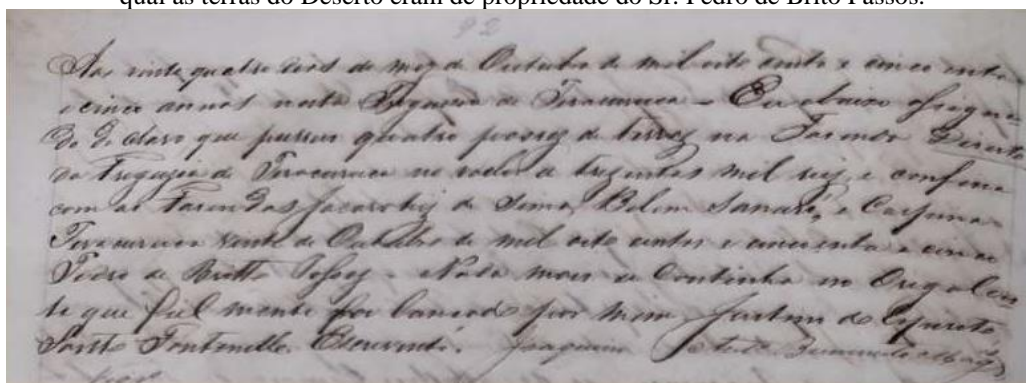 qual as terras do Deserto eram de propriedade do Sr. Pedro de Brito Passos.
92
Aos vinte quatro dias do mez de Outubro de mil oito centos e cinco enta
e cinco annos nesta Freguesia de Piracuruca – Eu abaixo assigna
do declaro que possuo quatro posses de terras na Fazenda Dezerto
da Freguezia de Piracuruca no valor de trezentos mil reis, e confina
com as Fazendas Jacarehy de Sima, Belem
Piracuruca vinte de Outubro de mil oito centos e cincoenta e cinco
Pedro de Britto Passos. Nada mais se Continha no Original
te que fielmente foi lancado por mim do Espirito
Santo Fontenelle. Escrevente. Joaquim